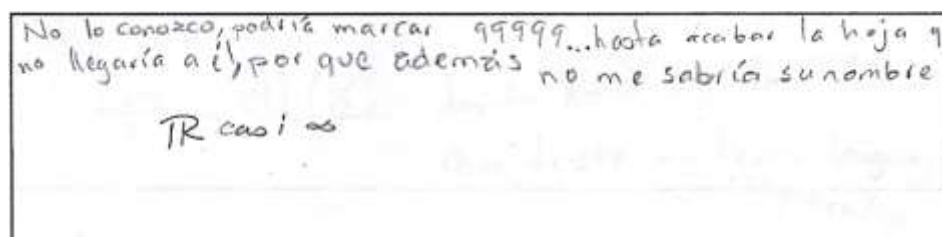 No lo conozco, podría marcar 99999...hasta acabar la hoja y
no llegaría a él, por que además no me sabría su nombre
R casi ∞